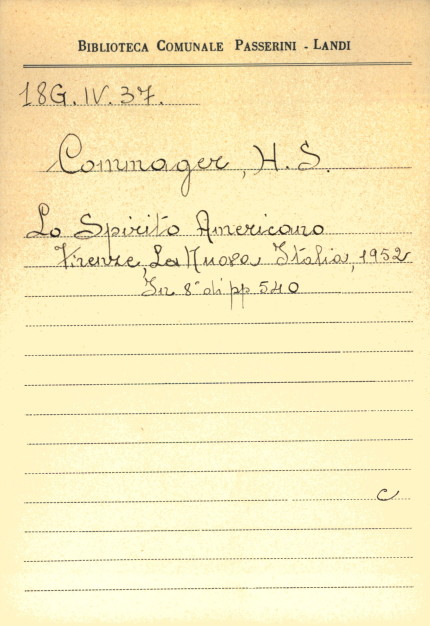 BIBLIOTECA COMUNALE PASSERINI - LANDI
18G.IV.37.
Commager, H.S.
Lo Spirito Americano
Firenze, La Nuova Italia, 1952
In 8° di pp 540
C